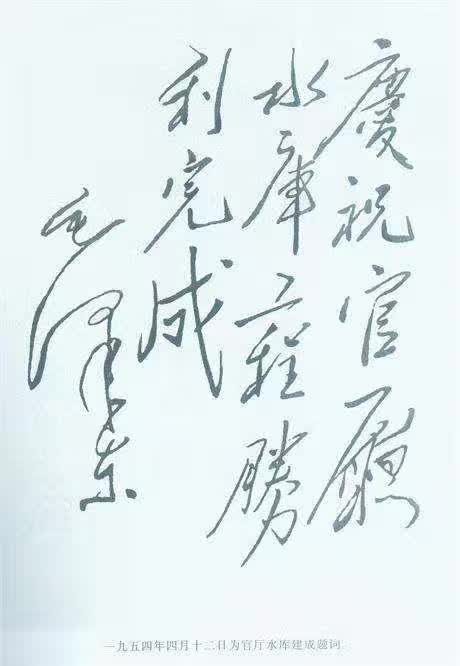 慶祝官廳
水庫工程勝
利完成
毛澤东
一九五四年四月十二日为官厅水库建成题词